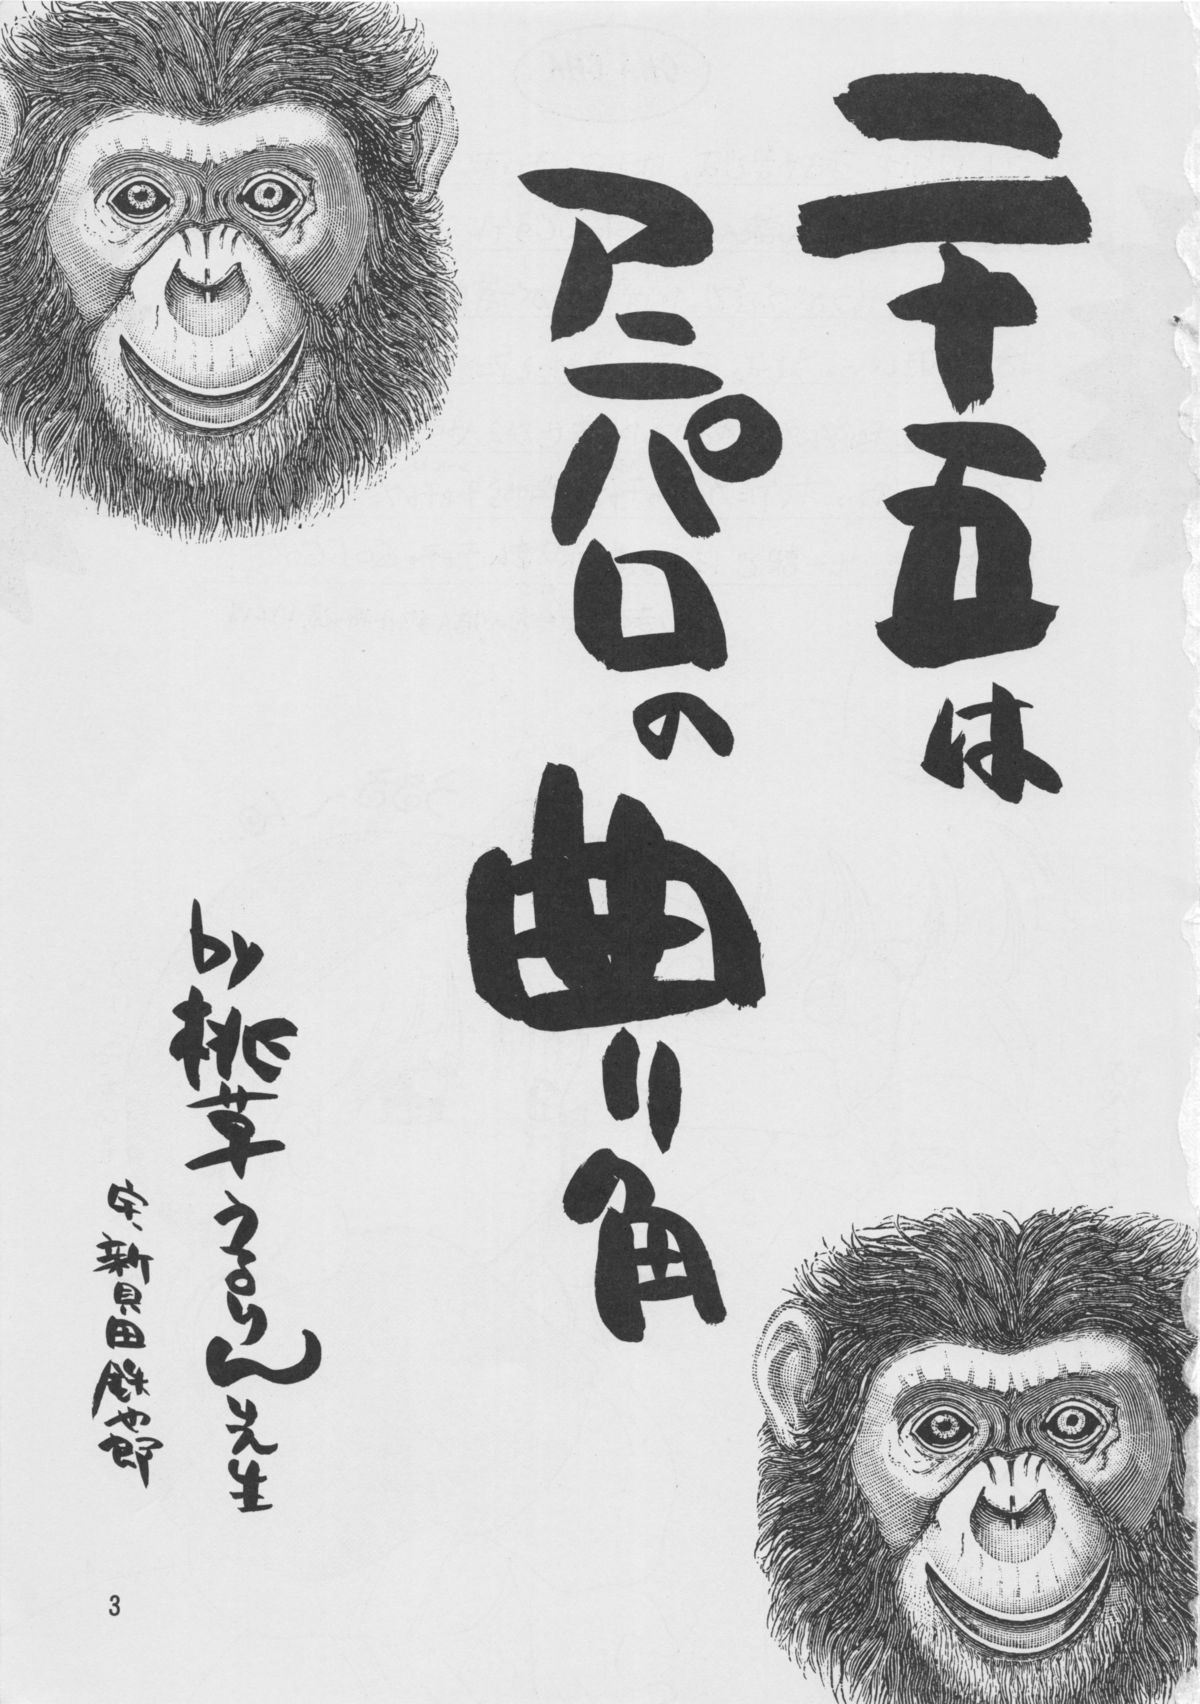 二十五は
アニパロの曲り角
by桃草うろりん先生
字、新貝田鉄也郎
3